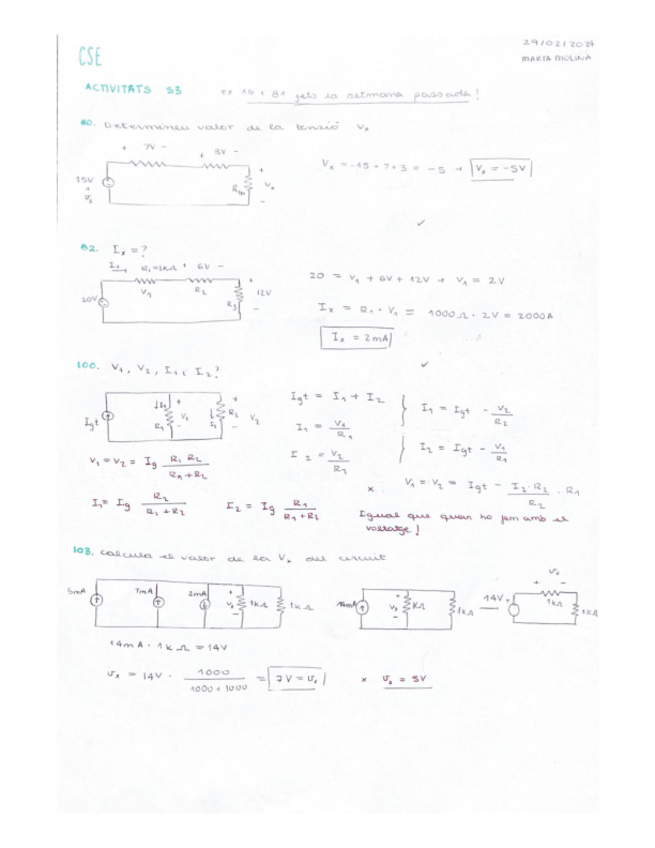 29/02/2024
CSE
MARTA MOLINA
ACTIVITATS S3
ex 16 i 81 fets la setmana passada!
80. Determineu valor de la tensió Vx
+ 7V - + 3V -
15V
Vx = -15 + 7 + 3 = -5 → Vx = -5V
82. Ix = ?
Ix R1=1KΩ + 6V -
V1 R2
20V R3 12V
20 = V1 + 6V + 12V → V1 = 2V
Ix = R1 · V1 = 1000Ω · 2V = 2000A
Ix = 2mA
100. V1, V2, I1, I2?
Igt
Igt = I1 + I2
I1 = V1/R1
I2 = V2/R2
I1 = Igt - V2/R2
I2 = Igt - V1/R1
V1 = V2 = Ig R1 R2 / R1+R2
x V1 = V2 = Igt - I2·R2/R2 · R1
I1 = Ig R2 / R1+R2
I2 = Ig R1 / R1+R2
Igual que quan ho fem amb el voltatge!
103. Calcula el valor de la Vx del circuit
5mA 7mA 2mA Vx 1KΩ 1KΩ
Vx 1KΩ 14V + Vx - 1KΩ 1KΩ
14mA · 1KΩ = 14V
Vx = 14V · 1000 / 1000+1000 = 7V = Vx
x Vx = 5V